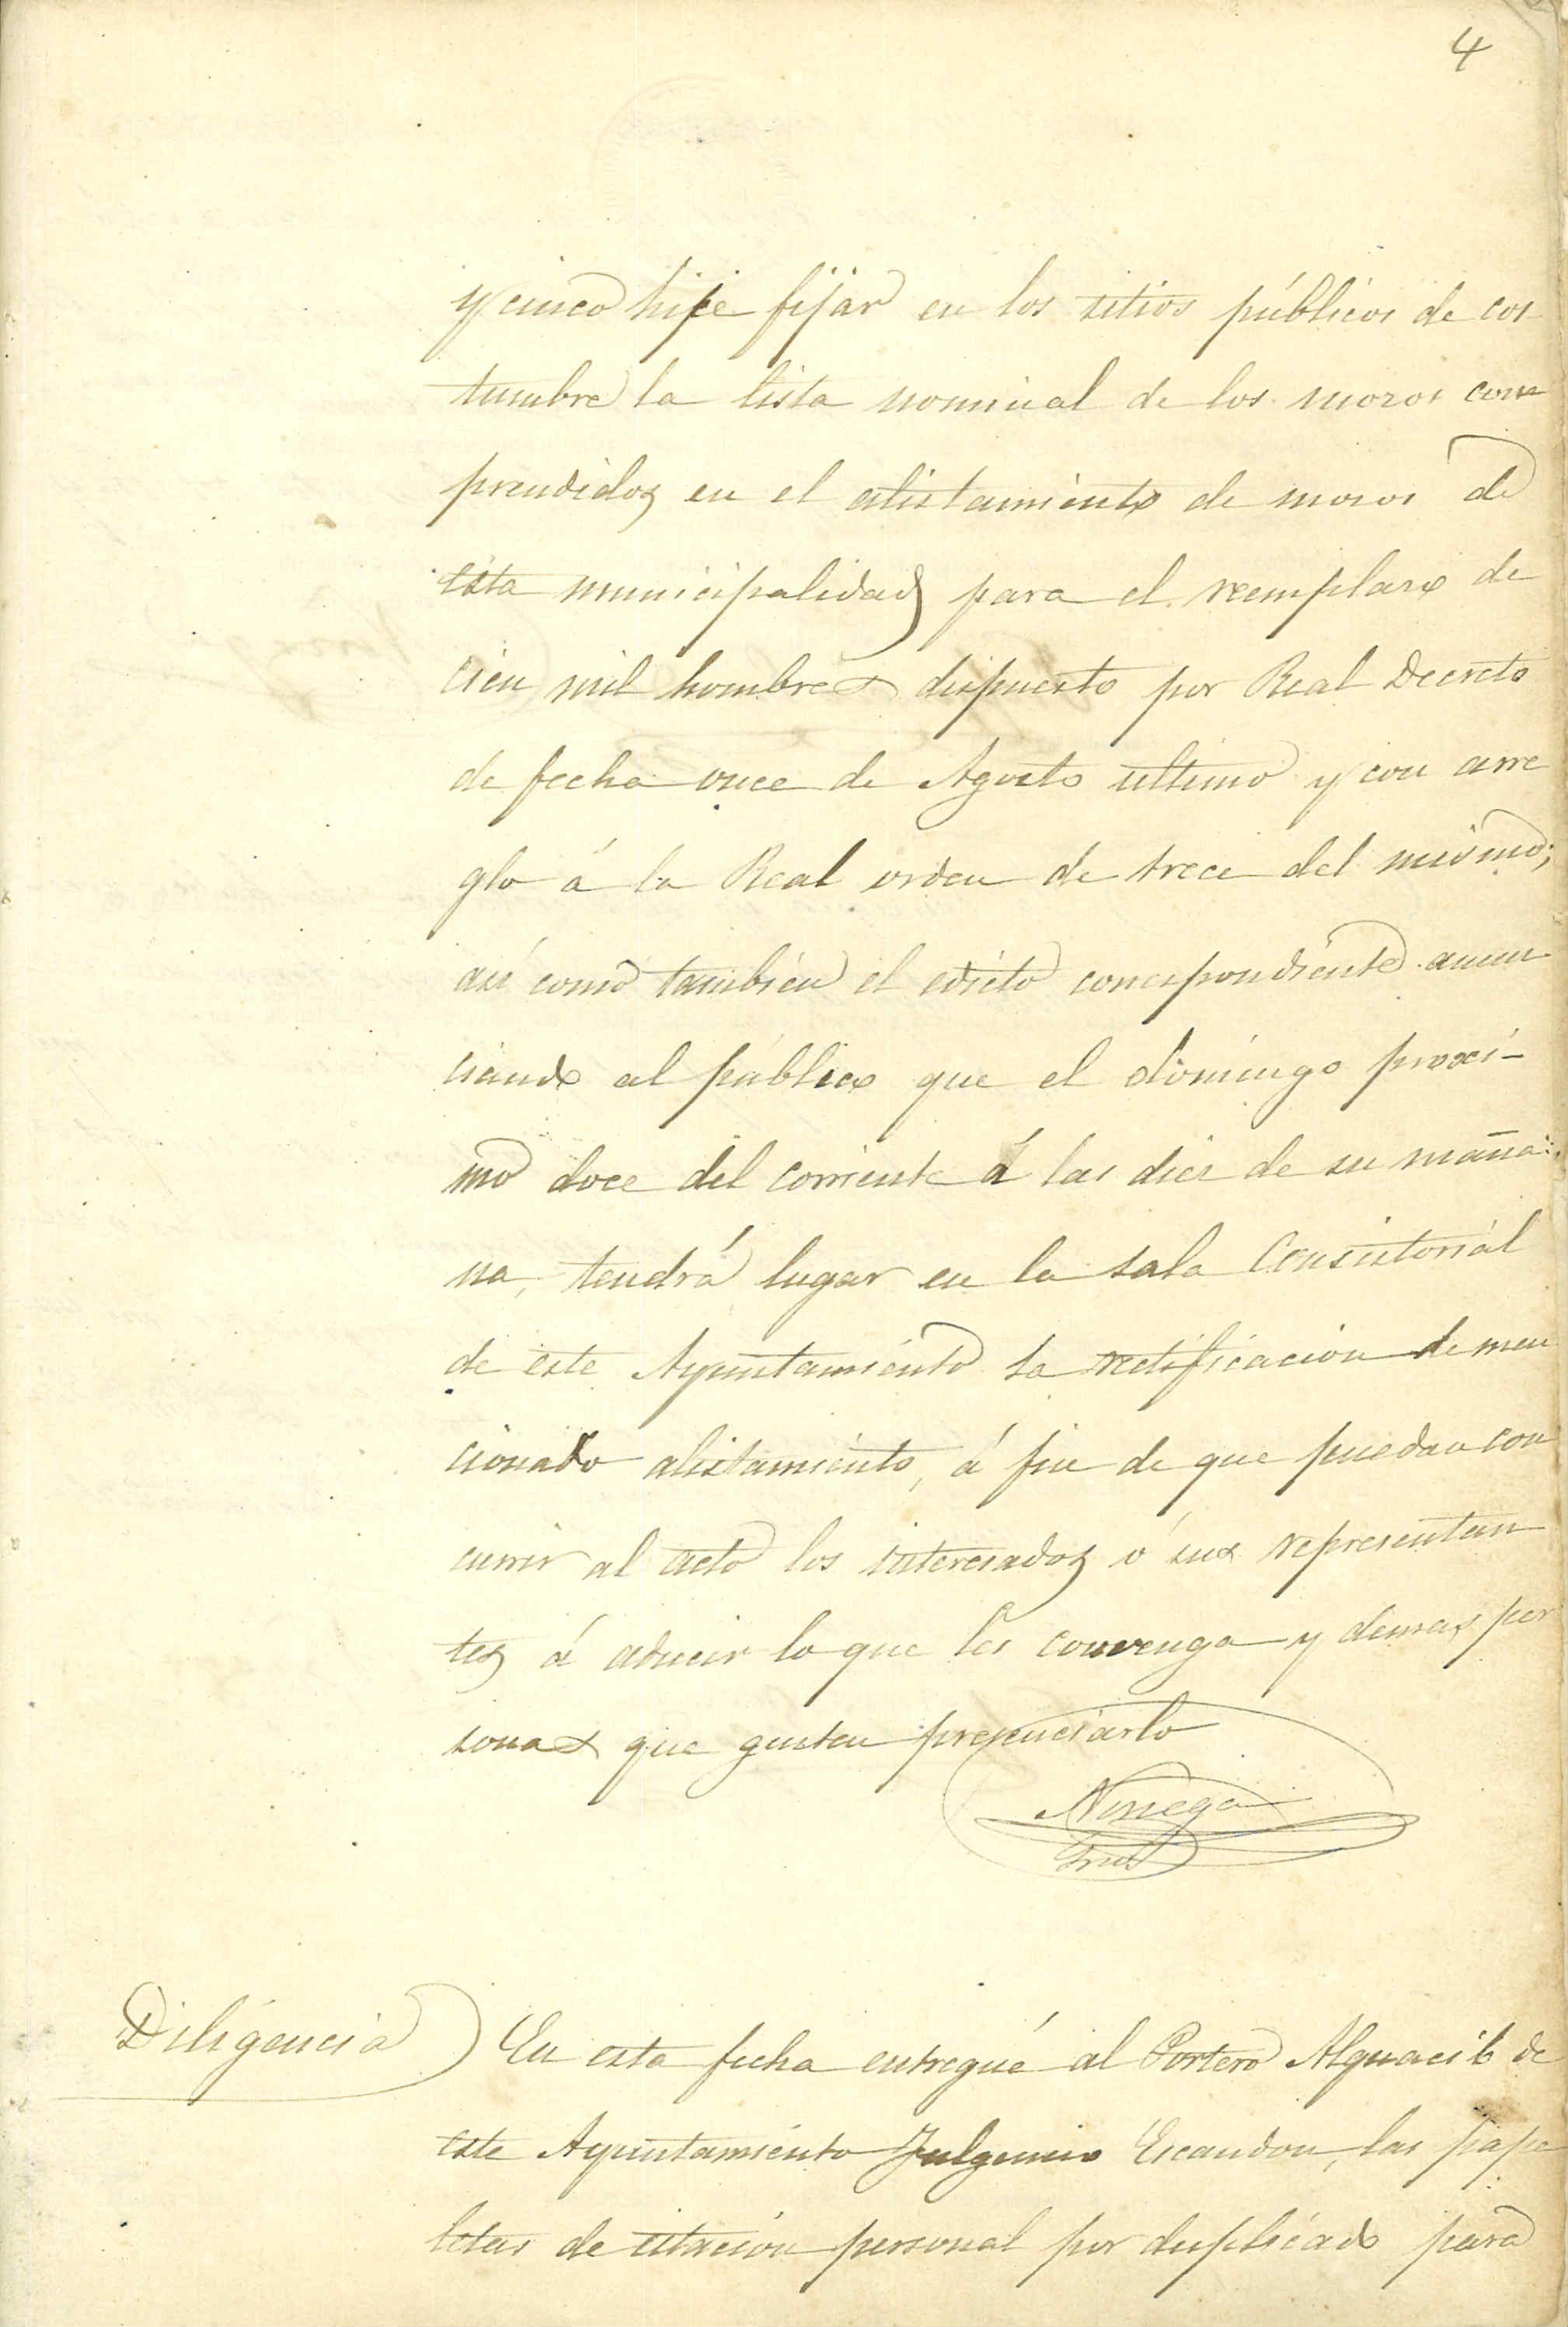 4
y cinco hice fijar en los sitios públicos de cos
tumbre la lista nominal de los mozos com
prendidos en el alistamiento de mozos de
esta municipalidad para el reemplazo de
cien mil hombres dispuesto por Real Decreto
de fecha once de Agosto ultimo y con arre
glo á la Real orden de trece del mismo;
asi como tambien el edicto correspondiente anun
ciando al público que el domingo proxi-
mo doce del corriente á las diez de su maña
na, tendrá lugar en la sala Consistorial
de este Ayuntamiento la rectificacion de men
cionado alistamiento, á fin de que puedan con
currir al acto los interesados ó sus representan
tes á aducir lo que les convenga y demas per
sonas que gusten presenciarlo
Noriega
Diligencia) En esta fecha entregué al Portero Alguacil de
este Ayuntamiento Fulgencio Escandon, las pape
letas de citacion personal por duplicado para